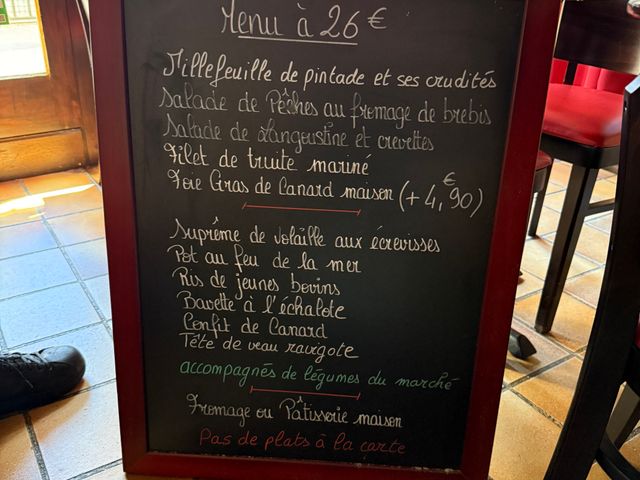 Menu à 26 €
Millefeuille de pintade et ses crudités
Salade de Pêches au fromage de brebis
Salade de Langoustine et crevettes
Filet de truite mariné
Foie Gras de Canard maison (+ 4,€90)
Suprême de volaille aux écrevisses
Pot au feu de la mer
Ris de jeunes bovins
Bavette à l'échalote
Confit de Canard
Tête de veau ravigote
accompagnés de légumes du marché
Fromage ou Pâtisserie maison
Pas de plats à la carte